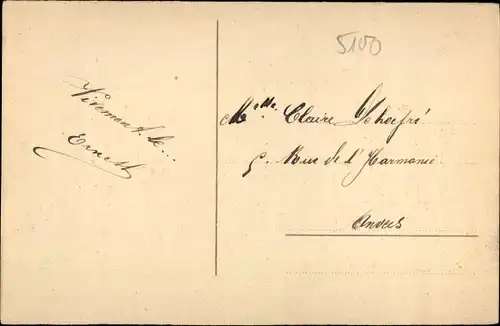 5100
Vivement le...
Ernest
Melle. Claire Schoefré
5. Rue de l'Harmonie
Anvers